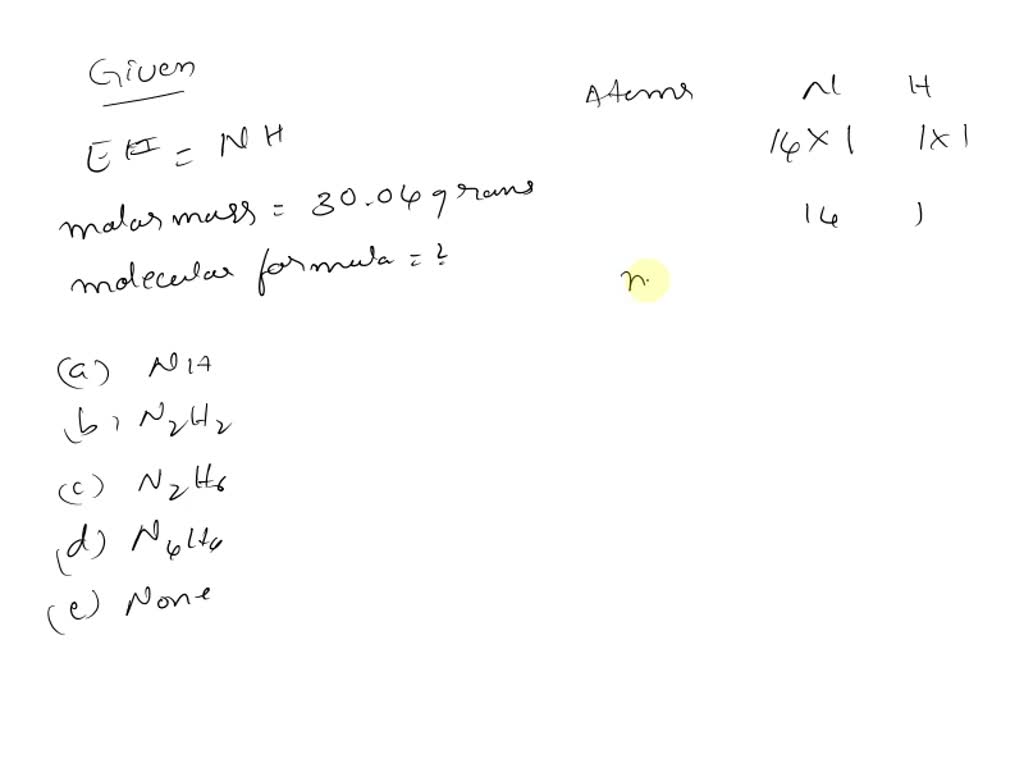 Given
EF = NH
molar mass = 30.04 grams
molecular formula = ?
(a) NH
(b) N2H2
(c) N2H6
(d) N4H4
(e) None
Atoms N H
14 × 1 1 × 1
14 1
n